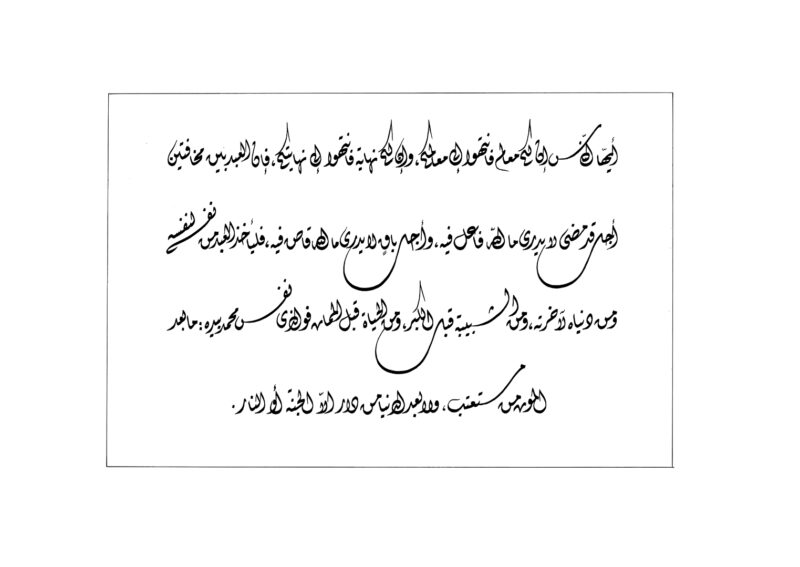 أيها الناس إن لكم معالم فانتهوا إلى معالمكم، وإن لكم نهاية فانتهوا إلى نهايتكم، فإن العبد بين مخافتين
أجل قد مضى لا يدري ما الله فاعل فيه، وأجل باقٍ لا يدري ما الله قاض فيه، فليأخذ العبد من نفسه لنفسه
ومن دنياه لآخرته، ومن الشبيبة قبل الكبر، ومن الحياة قبل الممات فوالذي نفس محمد بيده: ما بعد
الموت من مستعتب، ولا بعد الدنيا من دار الاّ الجنة أو النار.